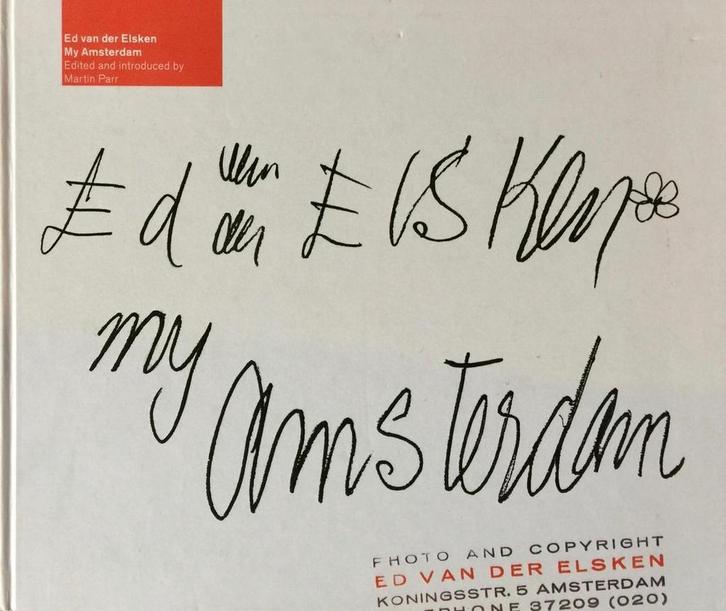 Ed van der Elsken
My Amsterdam
Edited and introduced by
Martin Parr
Ed van der Elsken
my
Amsterdam
PHOTO AND COPYRIGHT
ED VAN DER ELSKEN
KONINGSSTR. 5 AMSTERDAM
TELEPHONE 37209 (020)